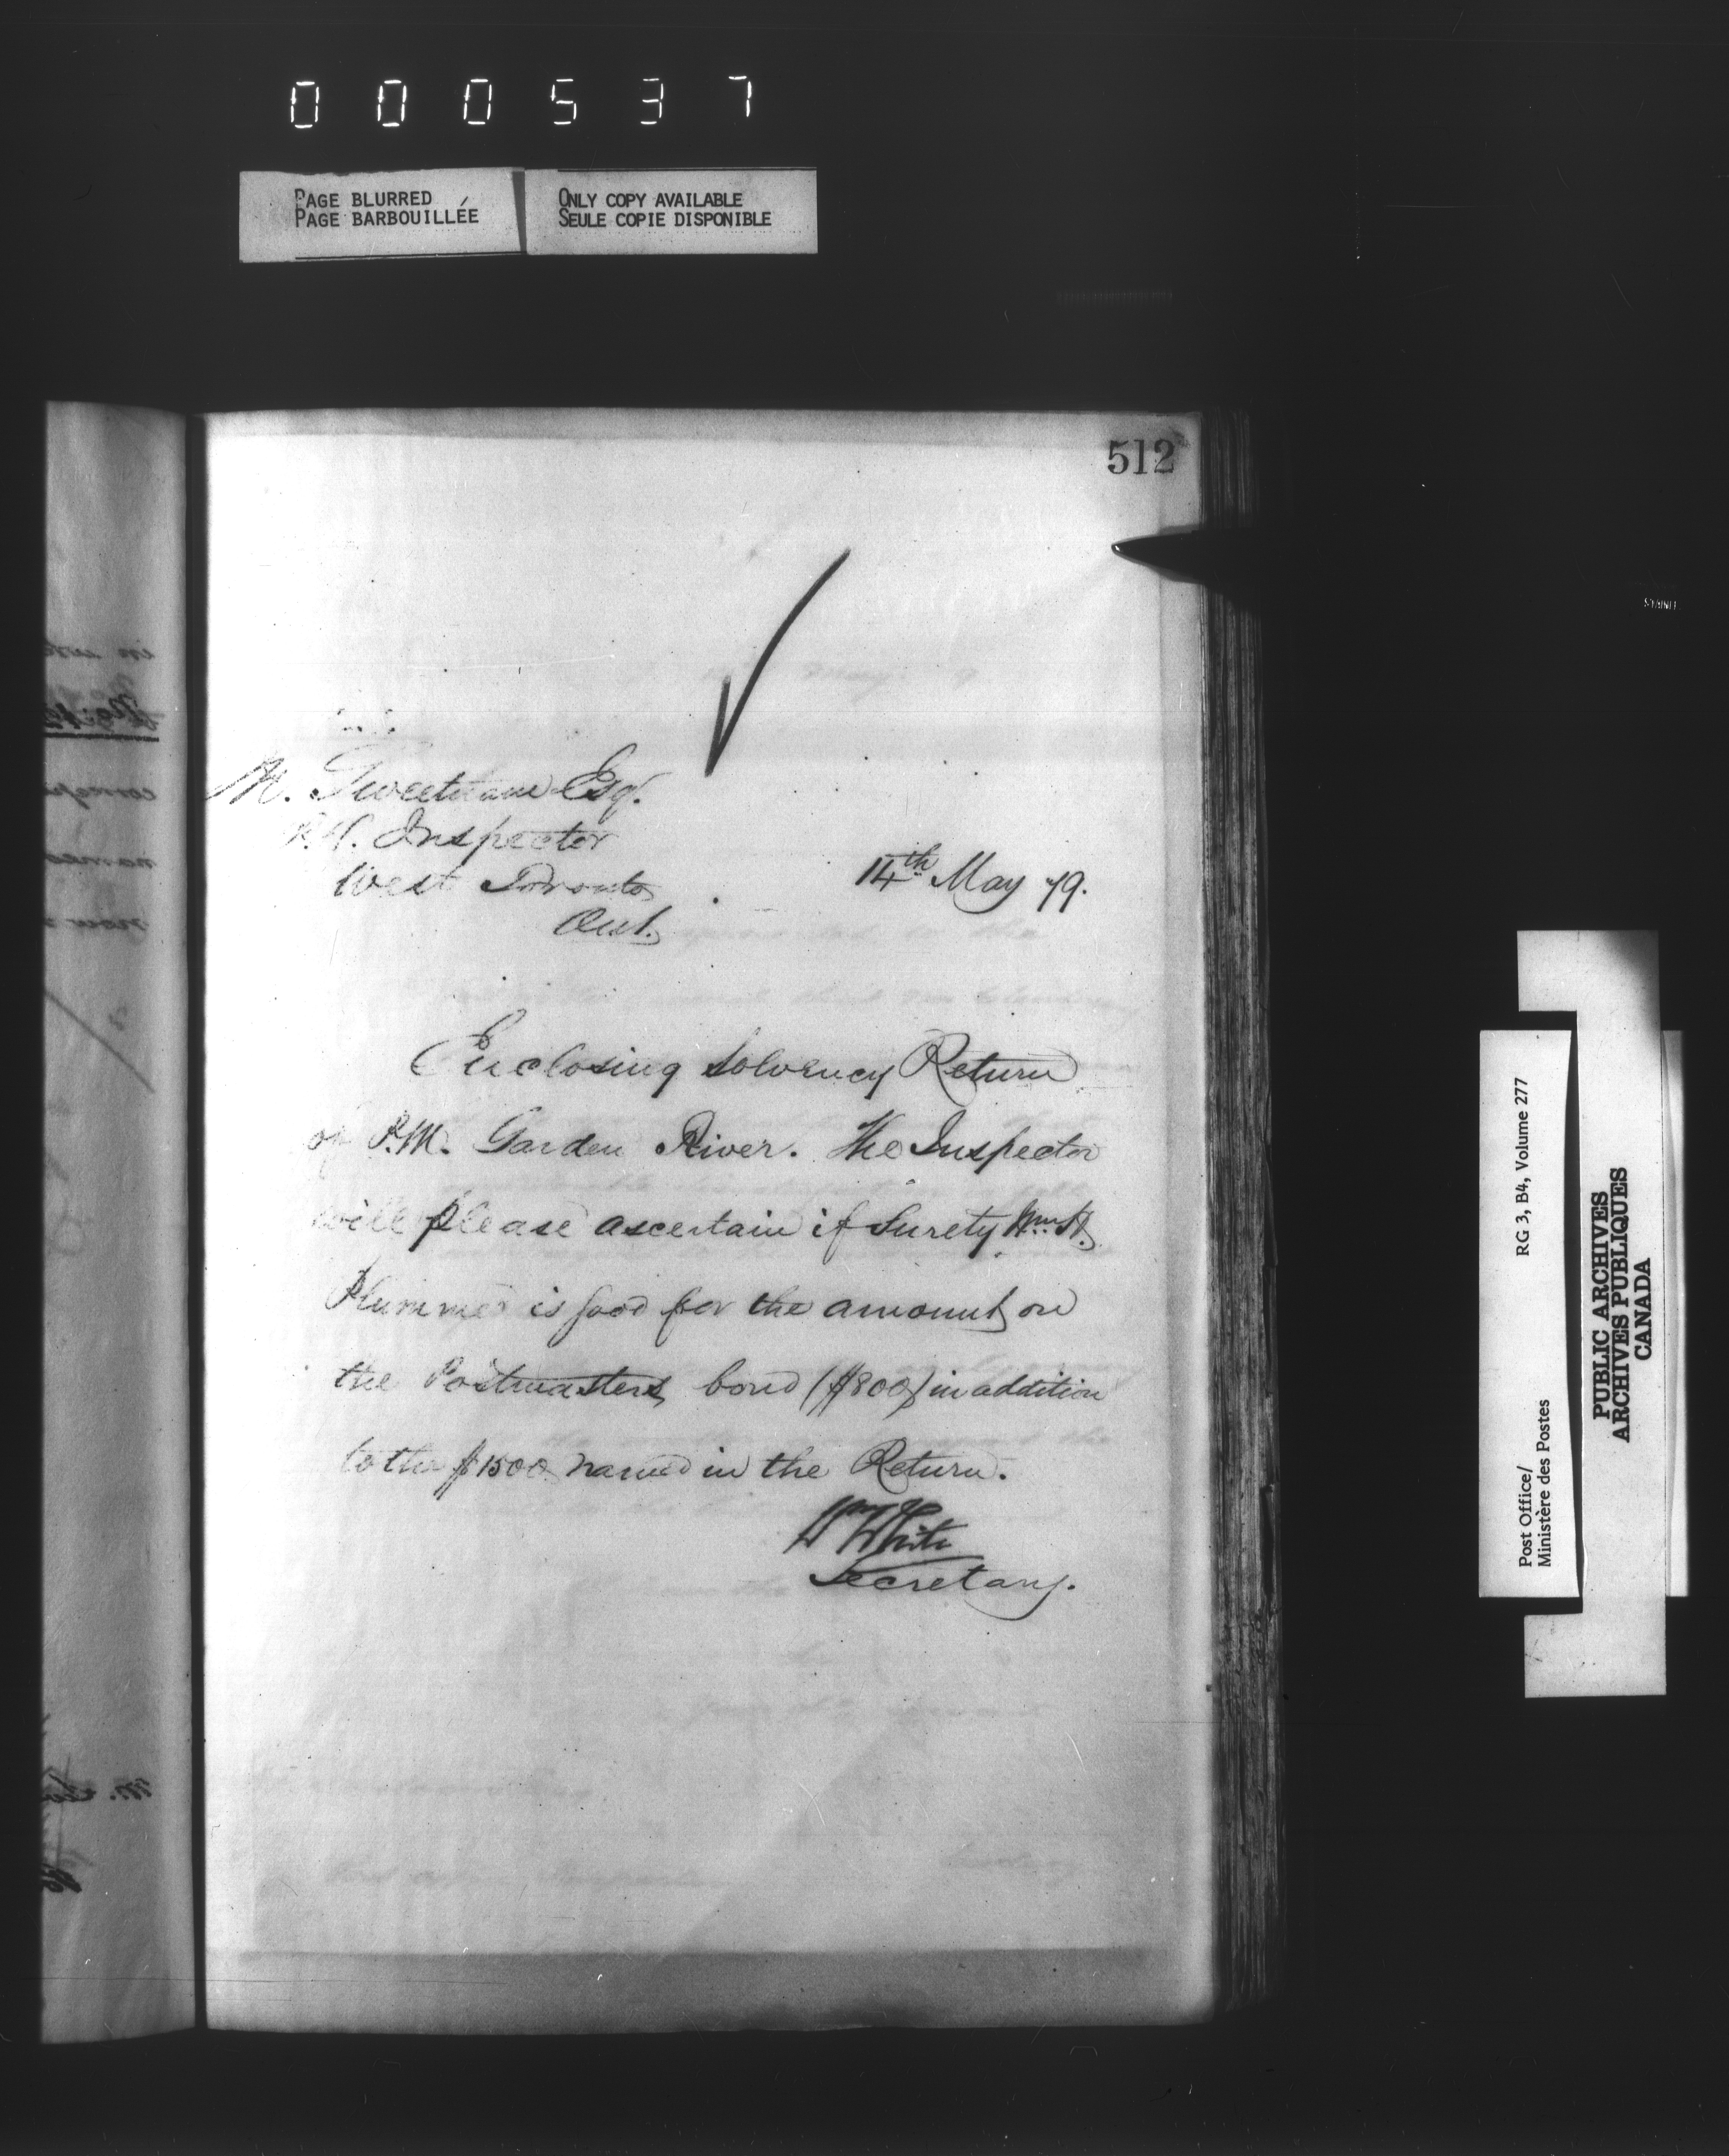 000537
PAGE BLURRED
PAGE BARBOUILLÉE
ONLY COPY AVAILABLE
SEULE COPIE DISPONIBLE
512
M. Sweetnam Esq.
P.O. Inspector
West Toronto
Ont.
14th May 79.
Enclosing Solvency Return
of P.M. Garden River. The Inspector
will please ascertain if Surety Wm. H.
Plummer is good for the amount on
the Postmasters bond ($800) in addition
to the $1500 named in the Return.
Wm White
Secretary.
Post Office/
Ministère des Postes
RG 3, B4, Volume 277
PUBLIC ARCHIVES
ARCHIVES PUBLIQUES
CANADA